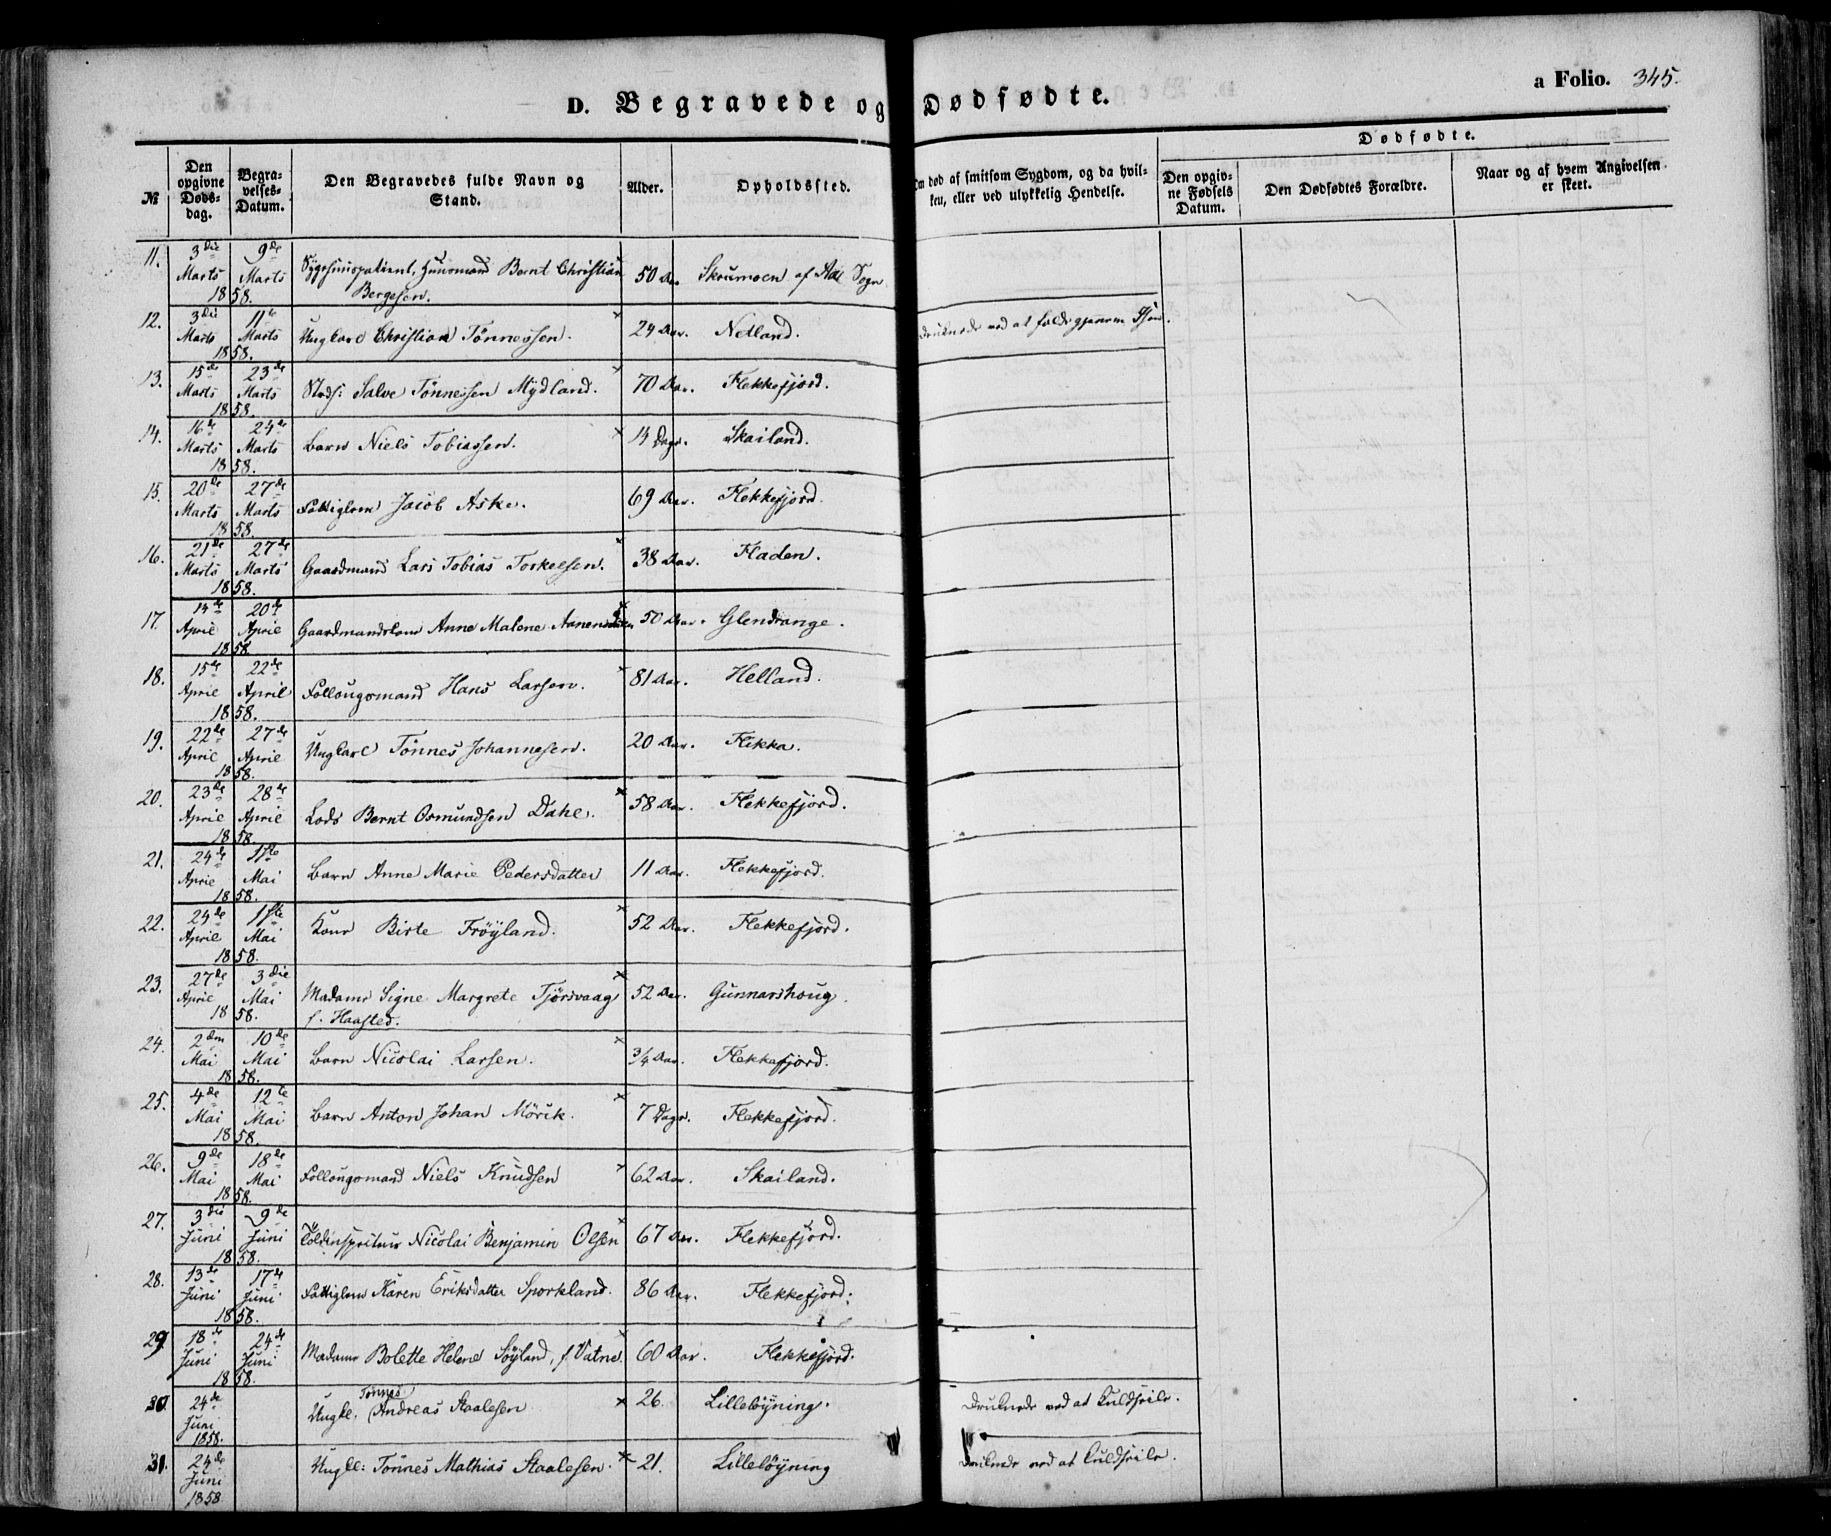 a Folio. 345.
D. Begravede og Dødfødte.
№
Den opgivne Døds-dag.
Begra-velses-Datum.
Den Begravedes fulde Navn og Stand.
Alder.
Opholdssted.
Om død af smitsom Sygdom, og da hvil-ken, eller ved ulykkelig Hendelse.
Dødfødte.
Den opgiv-ne Fødsels Datum.
Den Dødfødtes Forældre.
Naar og af hvem Angivelsen er skeet.
11. 3die Marts 9de Marts 1858. Huusmand Bernt Christian Bergesen. 50 Aar. Skrumoen af Aae Sogn
12. 3die Marts 11te Marts 1858. Ungkarl Christian Tönnessen. 24 Aar. Netland. druknede ved at falde gjennem Isen.
13. 15de Marts 23de Marts 1858. Salve Tönnessen Mydland. 70 Aar. Flekkefjord.
14. 16de Marts 24de Marts 1858. Barn Niels Tobiassen. 14 Dage. Skailand.
15. 20de Marts 27de Marts 1858. Fattiglem Jacob Aske. 69 Aar. Flekkefjord.
16. 21de Marts 27de Marts 1858. Gaardmand Lars Tobias Torkelsen. 38 Aar. Fladen.
17. 14de April 20de April 1858. Gaardmandskone Anne Malene 50 Aar. Glendrange.
18. 15de April 22de April 1858. Follougsmand Hans Larsen. 81 Aar. Helland.
19. 22de April 27de April 1858. Ungkarl Tönnes Johannesen. 20 Aar. Flikka.
20. 23de April 28de April 1858. Lods Bernt Osmundsen Dahl. 58 Aar. Flekkefjord.
21. 24de April 1ste Mai 1858. Barn Anne Marie Pedersdatter 11 Aar. Flekkefjord.
22. 24de April 1ste Mai 1858. Kone Birte Fröyland. 52 Aar. Flekkefjord.
23. 27de April 3die Mai 1858. Madame Signe Margrete Tjörsvaag f. Haasted. 52 Aar. Gunnarshoug.
24. 2den Mai 10de Mai 1858. Barn Nicolai Larsen. 3/4 Aar. Flekkefjord.
25. 4de Mai 12te Mai 1858. Barn Anton Johan Mörck. 7 Dage. Flekkefjord.
26. 9de Mai 18de Mai 1858. Follougsmand Niels Knudsen 62 Aar. Skailand.
27. 3die Juni 9de Juni 1858. Toldinspekteur Nicolai Benjamin Olsen 67 Aar. Flekkefjord.
28. 13de Juni 17de Juni 1858. Fattiglem Karen Eriksdatter Sporkland. 86 Aar. Flekkefjord.
29. 18de Juni 24de Juni 1858. Madame Bolette Helene Söyland, f. Vatne. 60 Aar. Flekkefjord.
30. 24de Juni 1858. Ungkl. Tönnes Andreas Staalesen 26. Lilleløyning. Druknede ved at Kuldseile.
31. 24de Juni 1858 Ungkl: Tönnes Mathias Staalesen. 21. Lilleløyning Druknede ved at Kuldseile.